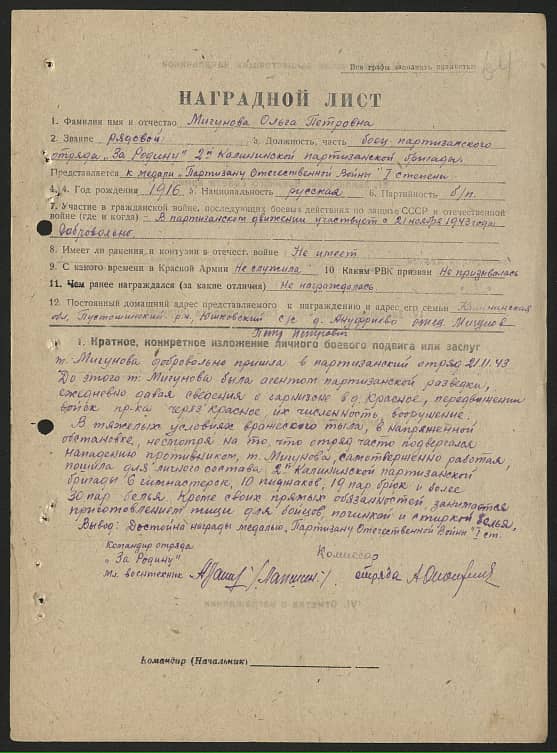 Все графы заполнять полностью
64
НАГРАДНОЙ ЛИСТ
1. Фамилия имя и отчество Мигунова Ольга Петровна
2. Звание рядовой 3. Должность, часть боец партизанского
отряда „За Родину" 2й Калининской партизанской бригады.
Представляется к медали „Партизану Отечественной Войны" I степени
4. Год рождения 1916 5. Национальность русская 6. Партийность б/п.
7. Участие в гражданской войне, последующих боевых действиях по защите СССР и отечественной
войне (где и когда) – В партизанском движении участвует с 21 ноября 1943 года
добровольно.
8. Имеет ли ранения и контузии в отечест. войне Не имеет
9. С какого времени в Красной Армии Не служила 10 Каким РВК призван Не призывалась
11. Чем ранее награждался (за какие отличия) Не награждалась
12. Постоянный домашний адрес представляемого к награждению и адрес его семьи Калининская
обл, Пустошинский р-н, Юшковский с/с д. Ануфриево отец Мигунов
Петр Петрович
I. Краткое, конкретное изложение личного боевого подвига или заслуг
т. Мигунова добровольно пришла в партизанский отряд 21.11.43
До этого т. Мигунова была агентом партизанской разведки,
ежедневно давая сведения о гарнизоне в д. Красное, передвижении
войск пр-ка через Красное, их численность, вооружение.
В тяжелых условиях вражеского тыла, в напряженной
обстановке, несмотря на то, что отряд часто подвергался
нападению противником, т. Мигунова, самотверженно работая,
пошила для личного состава 2й Калининской партизанской
бригады 6 гимнастерок, 10 пиджаков, 19 пар брюк и более
30 пар белья. Кроме своих прямых обязанностей занимается
приготовлением пищи для бойцов починкой и стиркой белья,
Вывод: Достойна награды медалью „Партизану Отечественной Войны" I ст.
Командир отряда
„За Родину"
мл. воентехник
Комиссар
отряда
Командир (Начальник)